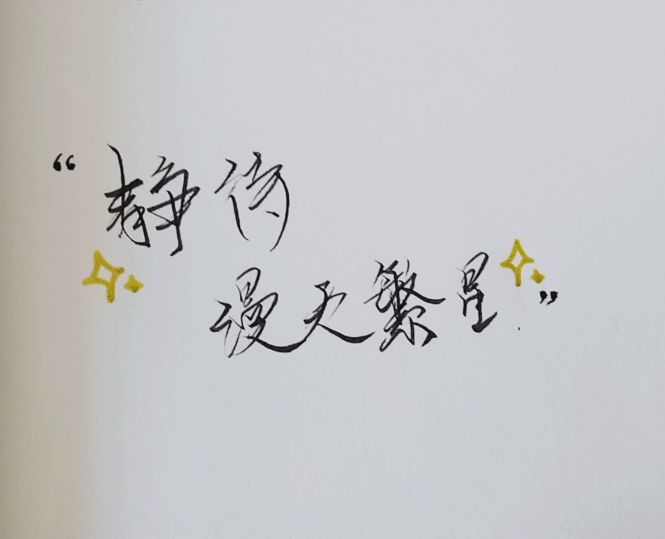 “静待
漫天繁星.”